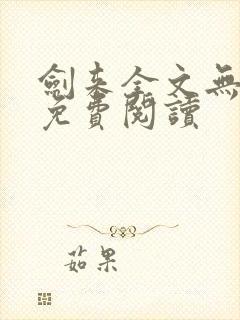 劍來全文無
免費閱讀
茹果